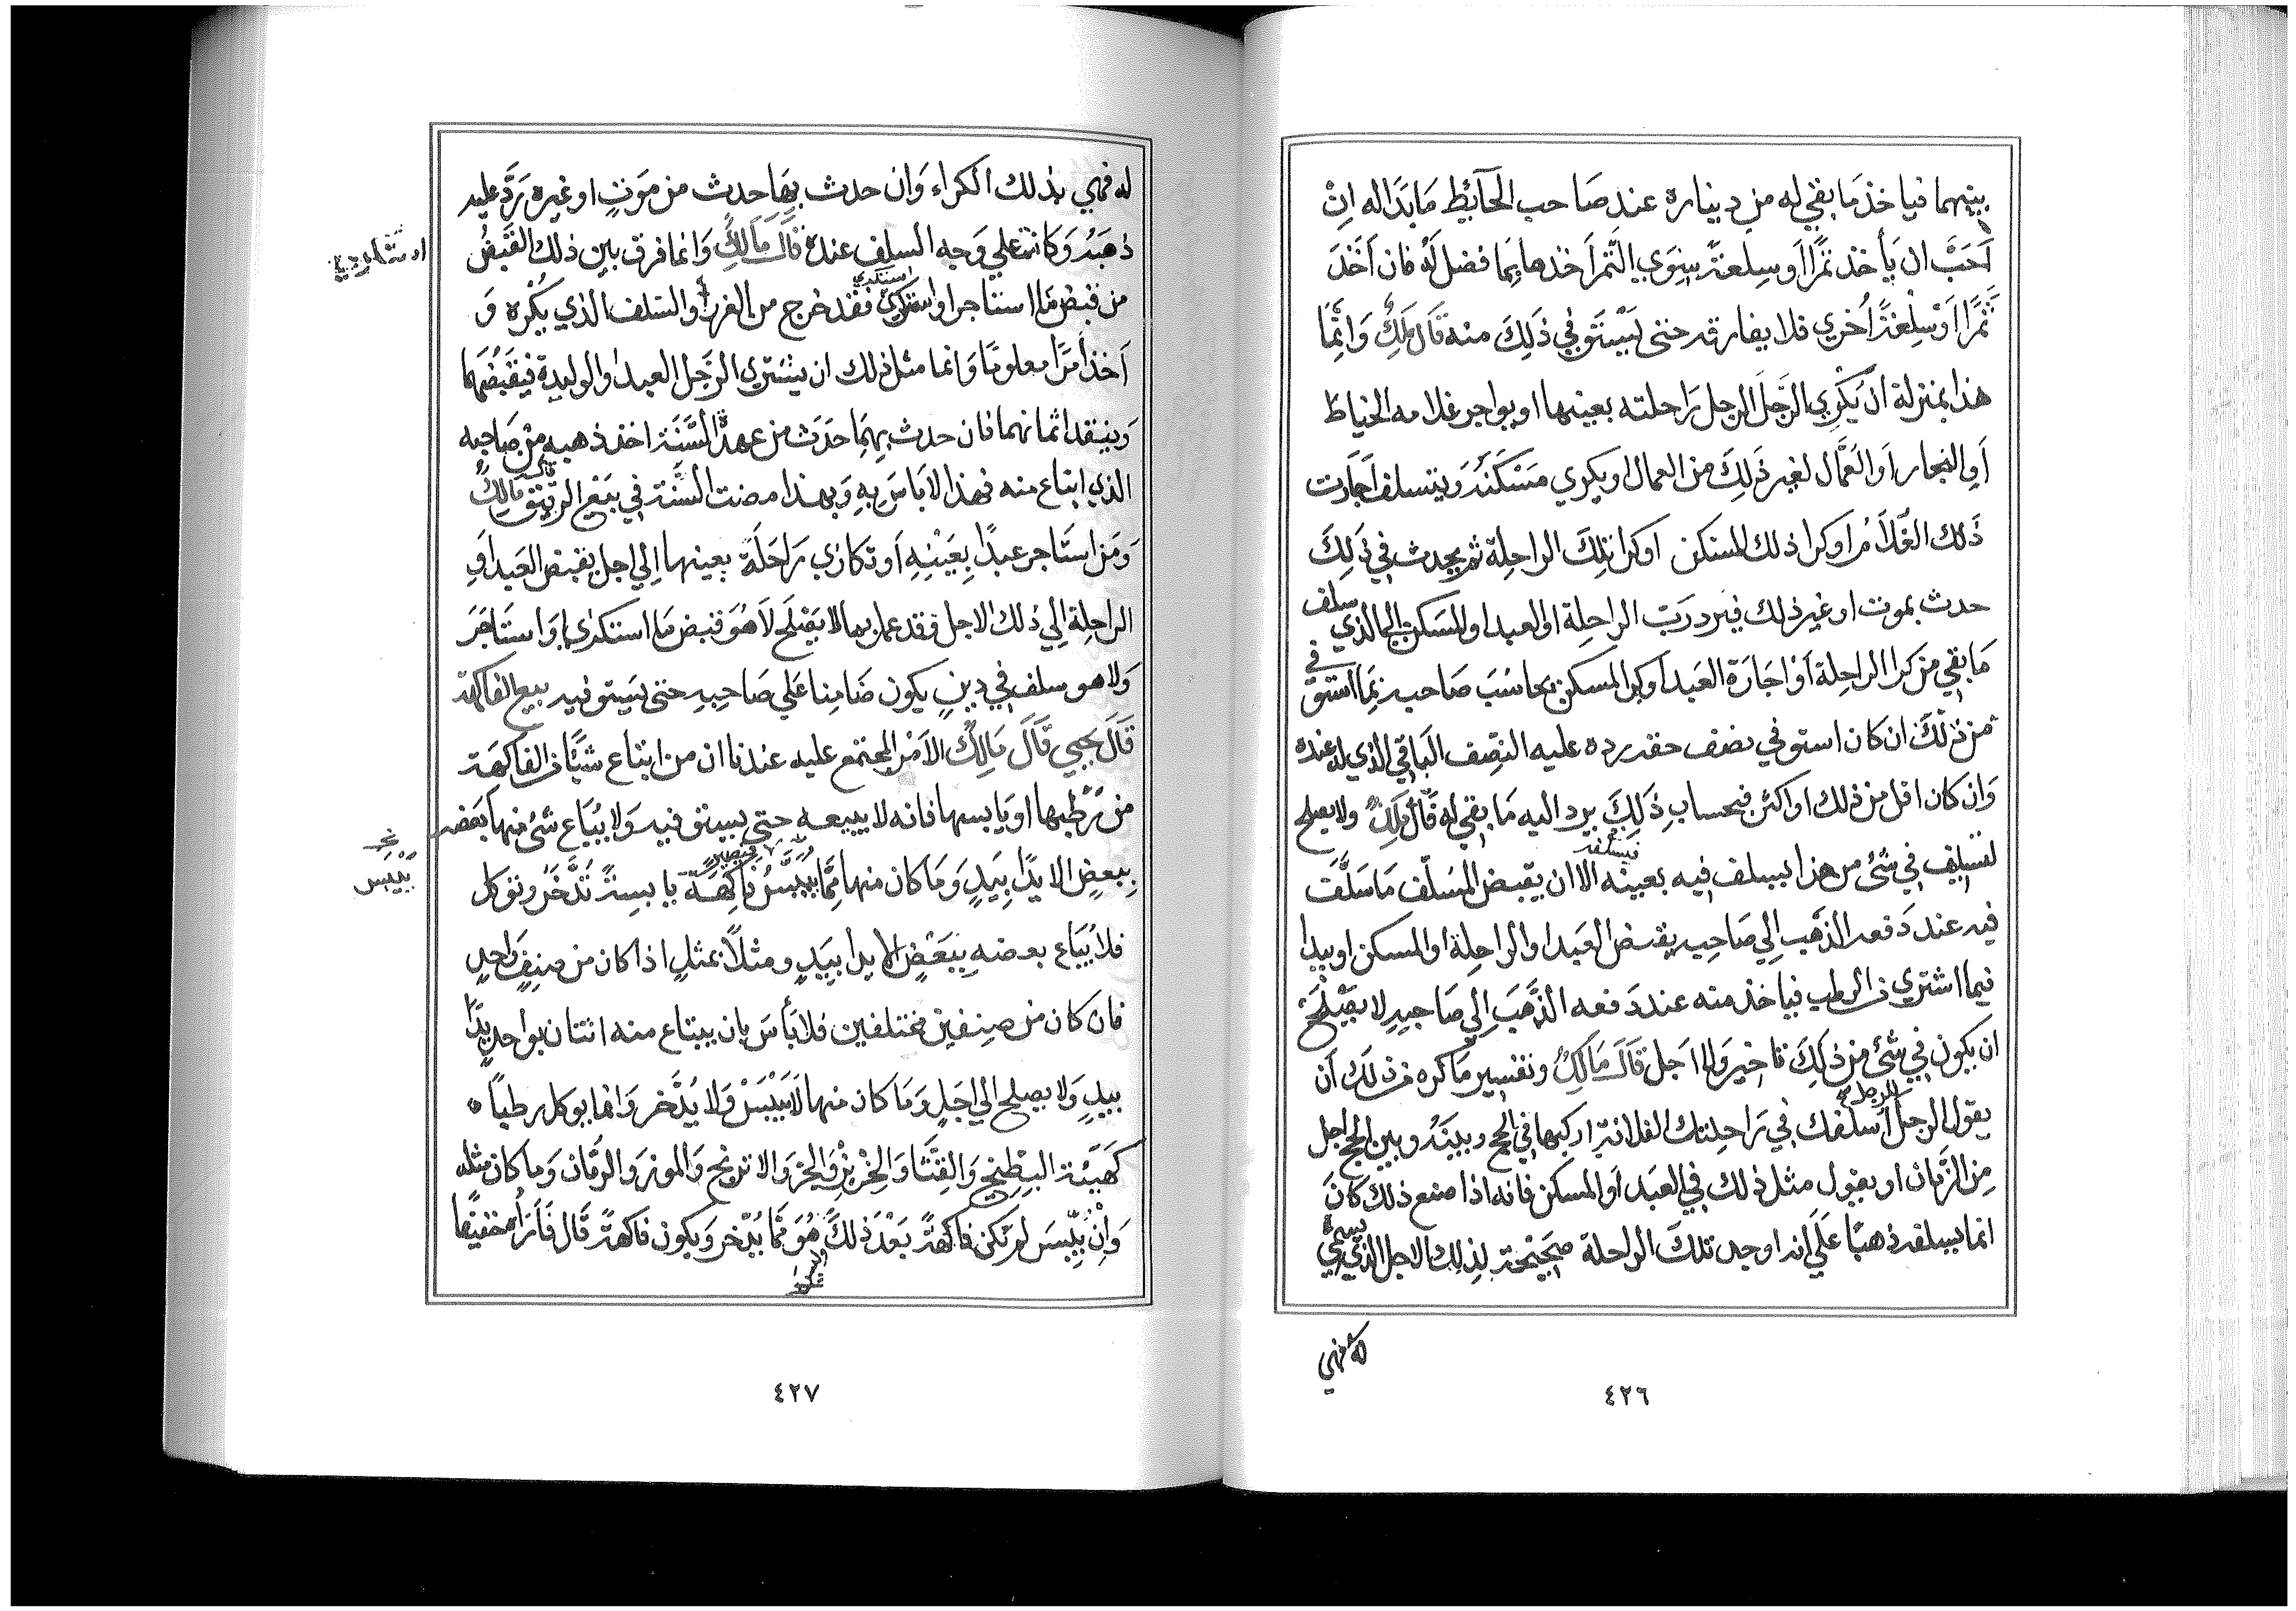 بينهما فياخذ مَا بقي له من ديناره عند صَاحب الحآئِط مَا بَدَا له اِنْ
اَحَبَّ ان يَأخذ تمرًا اَو سِلعَةً سِوَي التَّمر اَخذها بِمَا فضل لَهُ فان اَخَذَ
تَمرًا اَوْ سِلْعَةً اُخري فلا يفارقه حتى يَسْتَوْفي ذَلِكَ منه قَال مَلِكٌ وَانَّمَا
هذا بمنزلة اَنْ يَكْرِي الرَّجلُ الرجل رَاحلته بعينها او يواجر غلامه الخياط
اَوِ النجار اَو العَمَّال لغير ذَلِكَ من العمال او يكري مَسْكَنَهُ وَيتسلف اجَارَت
ذَلك الغُلاَمِ او كرا ذلك المسكن اوكرا تِلكَ الراحِلة ثم يحدث في ذَلِكَ
حدث بموت او غير ذلك فيَرد رَبّ الراحِلة او العبد او المَسكن الي الذي سلف
مَا بقي من كرا الراحِلة اَوْ اجَارَة العَبد اَوكرا المسكن يحاسَبَ صَاحبه بِمَا استوفي
من ذَلكَ ان كان استوفي نصف حقه رده عليه النِّصف البَاقي الذي له عنده
وَان كان اقل من ذلك او اكثر فبحسابِ ذَلِكَ يرد اليه مَا بقي له قَال مَلِكٌ ولا يصلح
لتسليف في شئ من هذا يسلف فيه بعينه الا ان يقبض المسُلّف مَا سَلَّفَ
فيسلفه
فيه عند دَفعه الذَّهَب الِي صَاحِبه يقبض العَبد او الراحِلة او المسكن او يبدا
فيما اشتري من الرطب فياخذ منه عند دَفعه الذَّهَبَ الِي صَاحِبِهِ لا يَصْلحُ
ان يكون في شئ من ذلِكَ تاخير وَلا اَجل قَالَ مَالِكٌ وتفسير مَا كره من ذلك اَن
يقول الرجل للرجل اُسلفك في رَاحِلتك الفلانية اركبها في الحج وبينَهُ وبين الحج اجل
مِن الزَّمَان او يقول مثل ذلك في العَبد اَو المسكن فانه اذا صنع ذلك كَانَ
انما يسلفه ذهبًا عَلَي انه ان وجد تلكَ الراحلة صَحِيْحَة لذلِك الاجل الذي يسمي
له فهي
٤٢٦
له فهي بذلك الكراء وَان حدث بِهَا حدث من مَوتٍ او غيره رَدَّ عليه
ذهَبَهُ وَكانت علي وَجه السلف عنده قَالَ مَالِكٌ وَانما فرق بين ذلك القَبضُ
من قبض مَا استاجر او استكري فقد خرج من الغرر والسّلف الذي يُكْره وَ
اَخذ اَمرًا معلومًا وَانما مثل ذلك ان يشتري الرَّجل العبد اَو الوليدة فيَقبُضهَما
وَينقد اثمانهما فان حدث بِهِمَا حدَث من عهدة السَّنَة اخذ ذهبه مِنْ صَاحبه
الذي ابتاع منه فهذا لا بَاس بِهِ وَبهذا مضت السُّنّة في بَيْع الرقيق قال مَالِكٌ
وَمَن استَاجر عبدًا بِعَيْنِهِ اَو تكارَي رَاحِلَة بِعينها اِلي اجل يقبض العَبد اَوِ
الراحِلة اِلي ذلك الاجل فقد عمل بما لا يَصْلَح لاَ هُوَ قبض مَا استكري اَو استَاجَرَ
وَلا هو سلف في دينٍ يكون ضَامِنا عَلي صَاحِبِهِ حتى يَستوفيه بيع الفاكهة
قَالَ يحيي قَالَ مَالِكٌ الاَمْر المجتمع عليه عندنا ان من ابتاع شَيًّا من الفاكهَة
من رَطْبِها او يَابسها فانه لا يبيعه حتى يستوفيه وَلا يُبَاع شئ منها بَعضه
بِبعضٍ الا يدًا بِيَدٍ وَمَا كان منها مِمَّا يَيْبَسُ فَاكِهَة يابسةً تُدَّخَرُ وتوكل
يَيْبَس
فلا يُبَاع بعضه بِبَعْضٍ الا يدا بيَدٍ ومثلاً بمثلٍ اذا كان من صِنفٍ وَاحدٍ
فان كان من صِنفين مختلفين فلا بَأسَ بان يبتاع منه اثنتان بواحدٍ يدًا
بيدٍ وَلا يصلح الي اجَلٍ وَمَا كان منها لاَ يَيْبَسُ وَلا يُدَّخر وَانما يوكل رطبًا
كَهَيْئة البِطِّيخ وَالقِثَّا وَالخِرْبِزِ وَالجزر وَالاترنج وَالموز وَالرمَّان وَما كان مثله
وَاِنْ يَبِسَ لم تكن فاكهةً بَعْدَ ذلكَ هُوَ مِمَّا يُدّخر وَيكون فاكهةً قَال فَاَرَاُه خفيفًا
٤٢٧